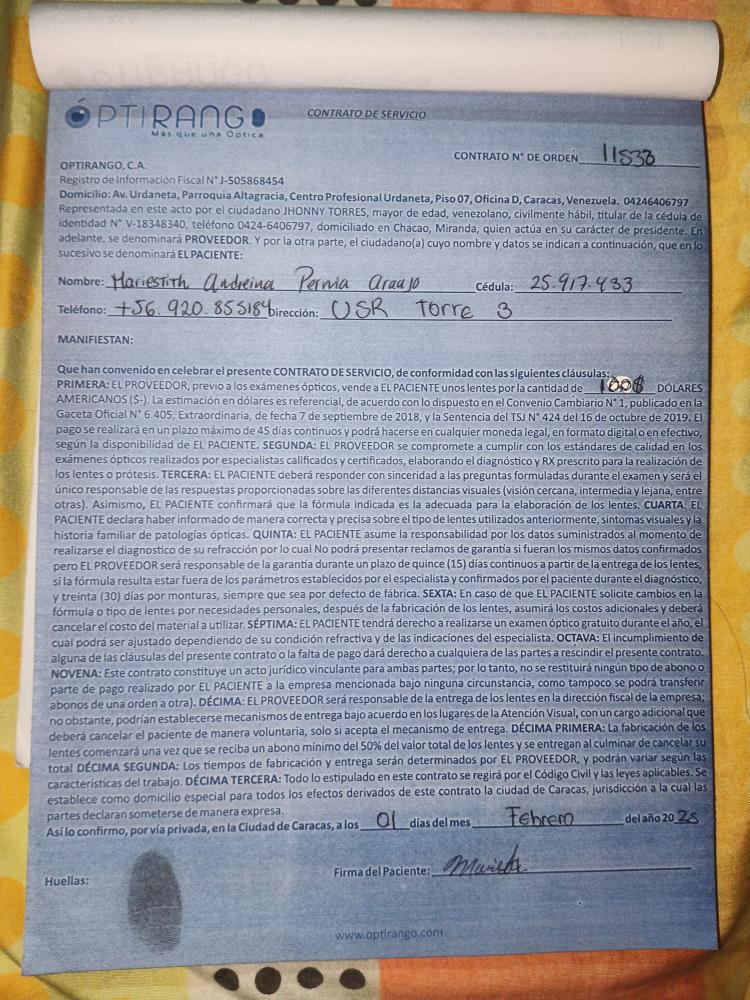 ÓPTIRANGO
Más que una Óptica
CONTRATO DE SERVICIO
CONTRATO N° DE ORDEN 11538
OPTIRANGO, C.A.
Registro de Información Fiscal N° J-505868454
Domicilio: Av. Urdaneta, Parroquia Altagracia, Centro Profesional Urdaneta, Piso 07, Oficina D, Caracas, Venezuela. 04246406797
Representada en este acto por el ciudadano JHONNY TORRES, mayor de edad, venezolano, civilmente hábil, titular de la cédula de
identidad N° V-18348340, teléfono 0424-6406797, domiciliado en Chacao, Miranda, quien actúa en su carácter de presidente. En
adelante, se denominará PROVEEDOR. Y por la otra parte, el ciudadano(a) cuyo nombre y datos se indican a continuación, que en lo
sucesivo se denominará EL PACIENTE:
Nombre: Mariestith Andreina Pernia Araujo Cédula: 25.917.433
Teléfono: +56.920.855184 Dirección: USR Torre 3
MANIFIESTAN:
Que han convenido en celebrar el presente CONTRATO DE SERVICIO, de conformidad con las siguientes cláusulas:
PRIMERA: EL PROVEEDOR, previo a los exámenes ópticos, vende a EL PACIENTE unos lentes por la cantidad de 100$ DÓLARES
AMERICANOS ($-). La estimación en dólares es referencial, de acuerdo con lo dispuesto en el Convenio Cambiario N° 1, publicado en la
Gaceta Oficial N° 6.405, Extraordinaria, de fecha 7 de septiembre de 2018, y la Sentencia del TSJ N° 424 del 16 de octubre de 2019. El
pago se realizará en un plazo máximo de 45 días continuos y podrá hacerse en cualquier moneda legal, en formato digital o en efectivo,
según la disponibilidad de EL PACIENTE. SEGUNDA: EL PROVEEDOR se compromete a cumplir con los estándares de calidad en los
exámenes ópticos realizados por especialistas calificados y certificados, elaborando el diagnóstico y RX prescrito para la realización de
los lentes o prótesis. TERCERA: EL PACIENTE deberá responder con sinceridad a las preguntas formuladas durante el examen y será el
único responsable de las respuestas proporcionadas sobre las diferentes distancias visuales (visión cercana, intermedia y lejana, entre
otras). Asimismo, EL PACIENTE confirmará que la fórmula indicada es la adecuada para la elaboración de los lentes. CUARTA: EL
PACIENTE declara haber informado de manera correcta y precisa sobre el tipo de lentes utilizados anteriormente, síntomas visuales y la
historia familiar de patologías ópticas. QUINTA: EL PACIENTE asume la responsabilidad por los datos suministrados al momento de
realizarse el diagnostico de su refracción por lo cual No podrá presentar reclamos de garantía si fueran los mismos datos confirmados
pero EL PROVEEDOR será responsable de la garantía durante un plazo de quince (15) días continuos a partir de la entrega de los lentes,
si la fórmula resulta estar fuera de los parámetros establecidos por el especialista y confirmados por el paciente durante el diagnóstico,
y treinta (30) días por monturas, siempre que sea por defecto de fábrica. SEXTA: En caso de que EL PACIENTE solicite cambios en la
fórmula o tipo de lentes por necesidades personales, después de la fabricación de los lentes, asumirá los costos adicionales y deberá
cancelar el costo del material a utilizar. SÉPTIMA: EL PACIENTE tendrá derecho a realizarse un examen óptico gratuito durante el año, el
cual podrá ser ajustado dependiendo de su condición refractiva y de las indicaciones del especialista. OCTAVA: El incumplimiento de
alguna de las cláusulas del presente contrato o la falta de pago dará derecho a cualquiera de las partes a rescindir el presente contrato.
NOVENA: Este contrato constituye un acto jurídico vinculante para ambas partes; por lo tanto, no se restituirá ningún tipo de abono o
parte de pago realizado por EL PACIENTE a la empresa mencionada bajo ninguna circunstancia, como tampoco se podrá transferir
abonos de una orden a otra). DÉCIMA: EL PROVEEDOR será responsable de la entrega de los lentes en la dirección fiscal de la empresa;
no obstante, podrían establecerse mecanismos de entrega bajo acuerdo en los lugares de la Atención Visual, con un cargo adicional que
deberá cancelar el paciente de manera voluntaria, solo si acepta el mecanismo de entrega. DÉCIMA PRIMERA: La fabricación de los
lentes comenzará una vez que se reciba un abono mínimo del 50% del valor total de los lentes y se entregan al culminar de cancelar su
total DÉCIMA SEGUNDA: Los tiempos de fabricación y entrega serán determinados por EL PROVEEDOR, y podrán variar según las
características del trabajo. DÉCIMA TERCERA: Todo lo estipulado en este contrato se regirá por el Código Civil y las leyes aplicables. Se
establece como domicilio especial para todos los efectos derivados de este contrato la ciudad de Caracas, jurisdicción a la cual las
partes declaran someterse de manera expresa.
Así lo confirmo, por vía privada, en la Ciudad de Caracas, a los 01 días del mes Febrero del año 2025
Huellas:
Firma del Paciente:
www.optirango.com